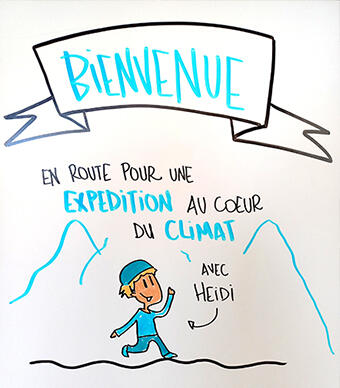 BiENVENUE
EN ROUTE POUR UNE
EXPEDITION AU COEUR
DU CLIMAT
AVEC
HEiDi